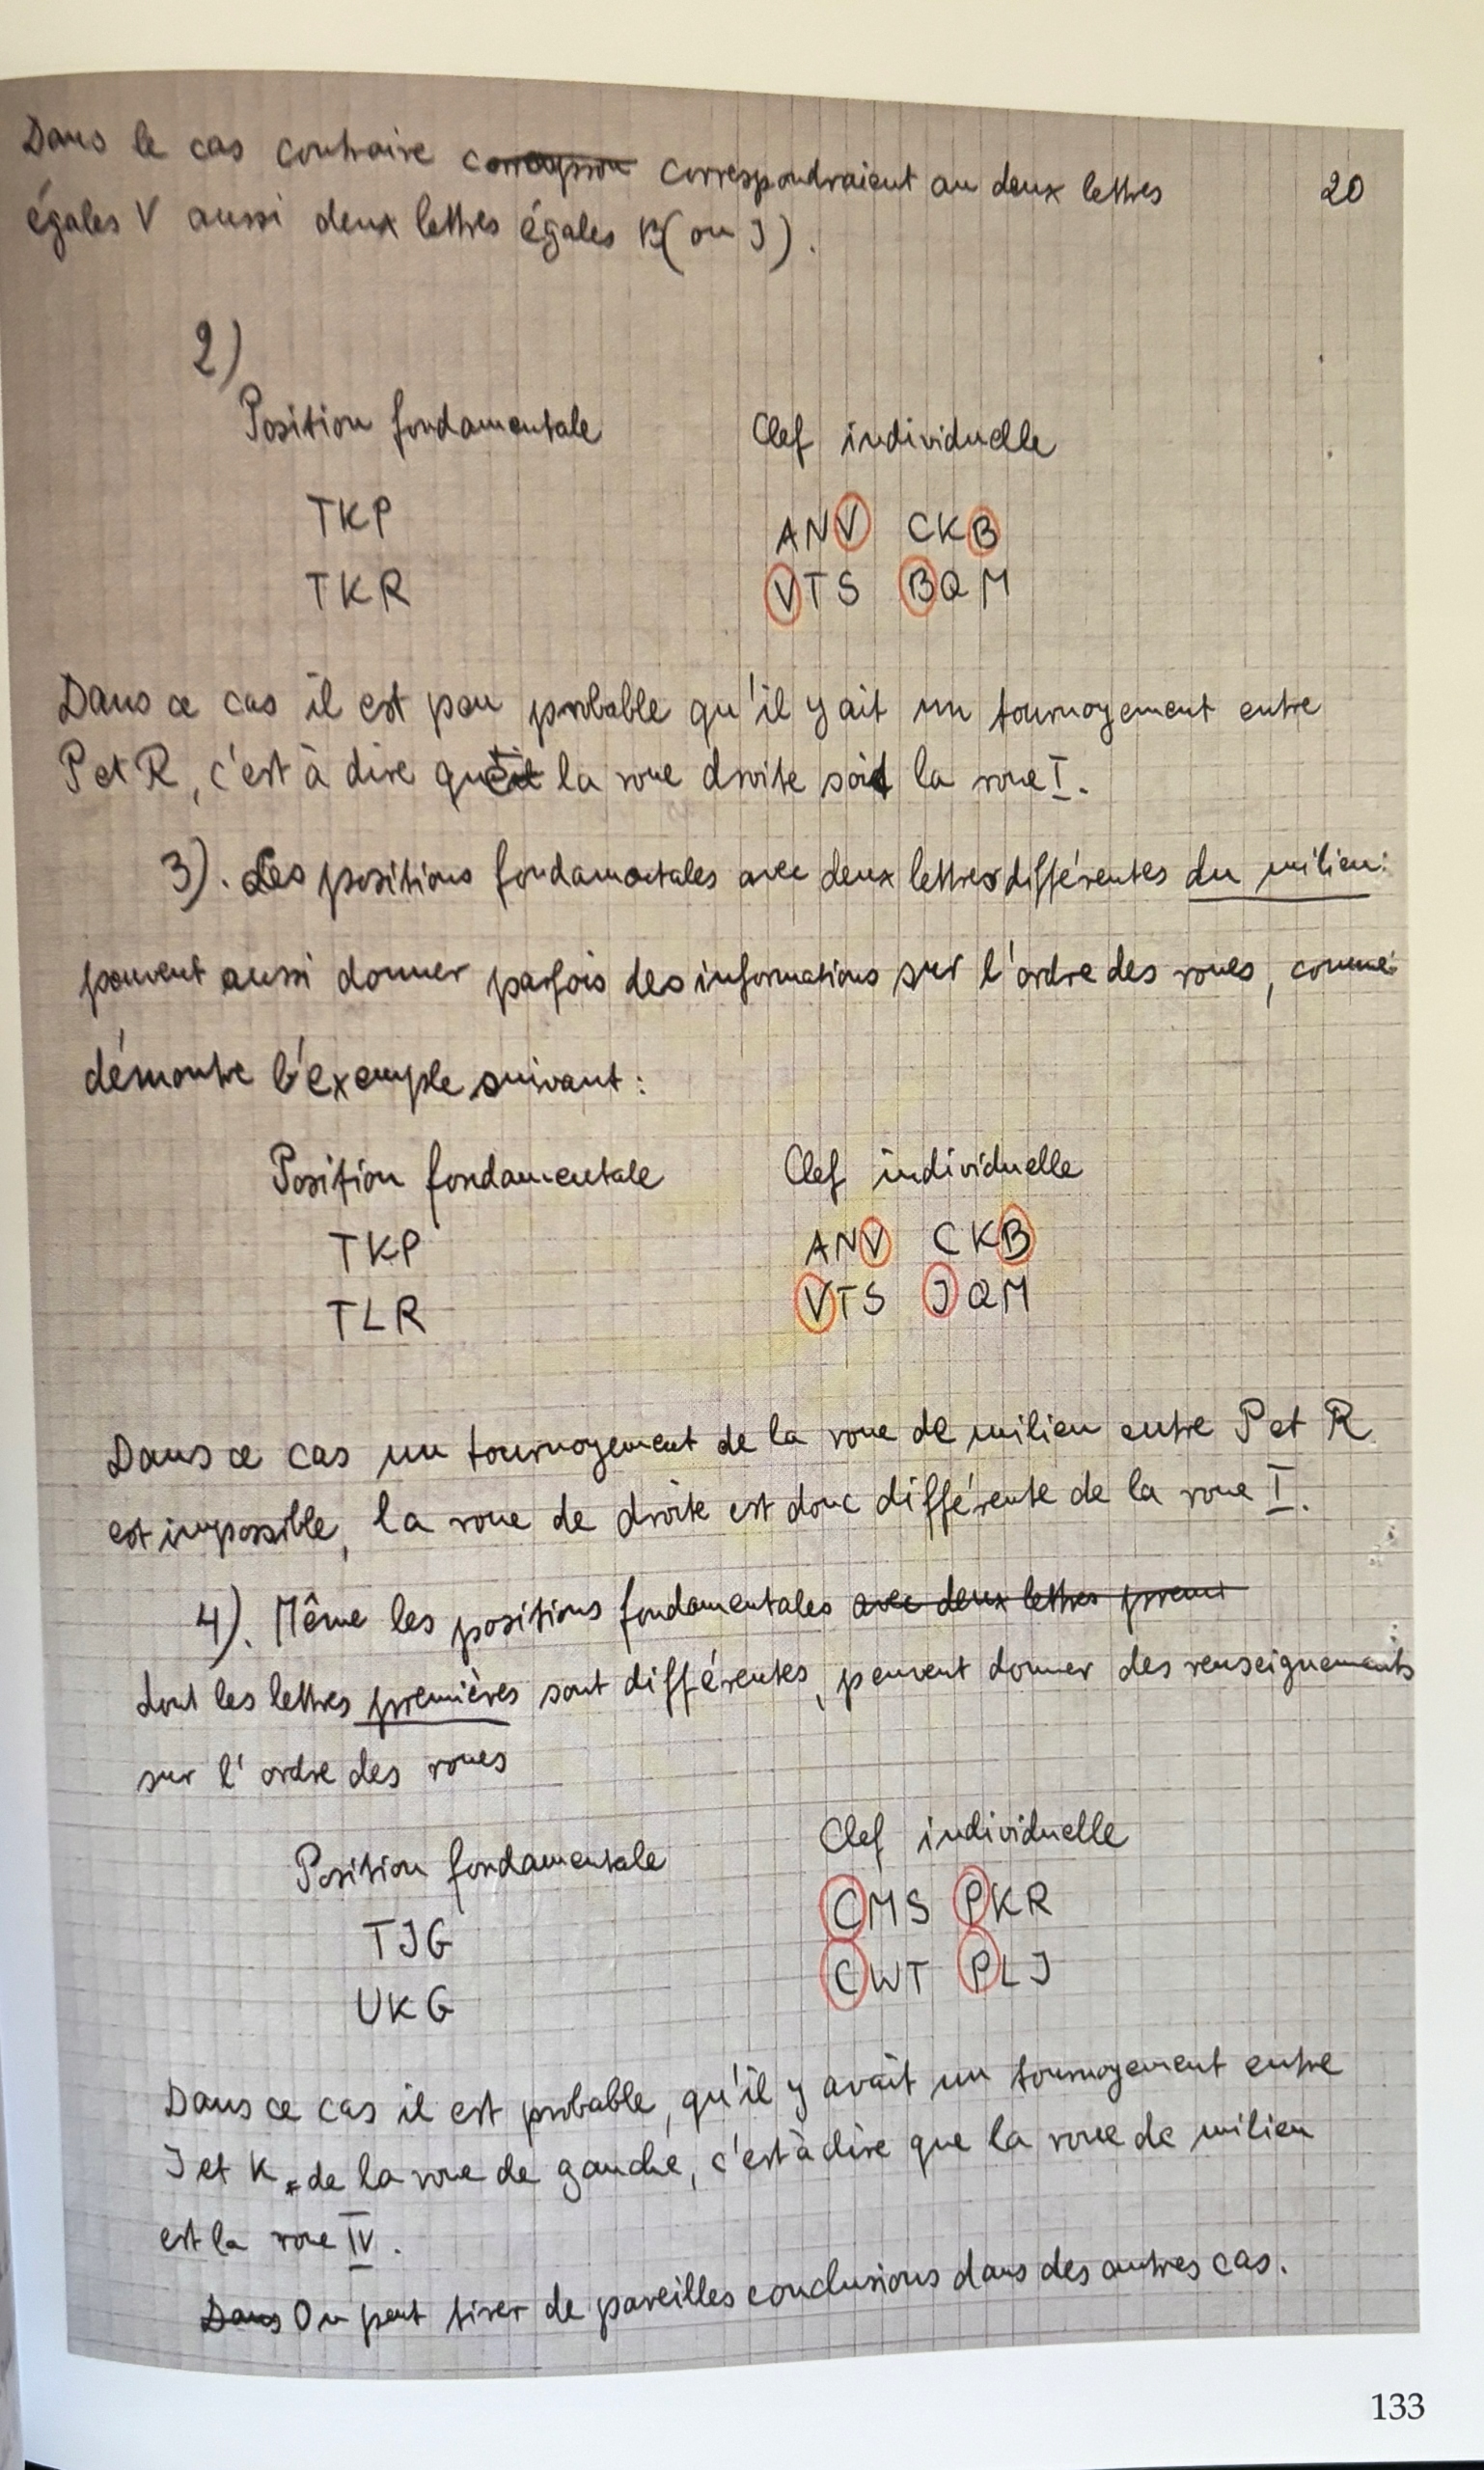 Dans le cas contraire correspondraient au deux lettres 20
égales V aussi deux lettres égales B (ou J).
2)
Position fondamentale Clef individuelle
TKP ANV CKB
TKR VTS BQM
Dans ce cas il est peu probable qu'il y ait un tournoyement entre
P et R, c'est à dire que la roue droite soit la roue I.
3). Les positions fondamentales avec deux lettres différentes du milieu
peuvent aussi donner parfois des informations sur l'ordre des roues, comme
démontre l'exemple suivant:
Position fondamentale Clef individuelle
TKP ANV CKB
TLR VTS JQM
Dans ce cas un tournoyement de la roue de milieu entre P et R
est impossible, la roue de droite est donc différente de la roue I.
4). Même les positions fondamentales avec deux lettres premi
dont les lettres premières sont différentes, peuvent donner des renseignements
sur l'ordre des roues
Position fondamentale Clef individuelle
TJG CMS PKR
UKG CWT PLJ
Dans ce cas il est probable, qu'il y avait un tournoyement entre
J et K de la roue de gauche, c'est à dire que la roue de milieu
est la roue IV.
Dans On peut tirer de pareilles conclusions dans des autres cas.
133